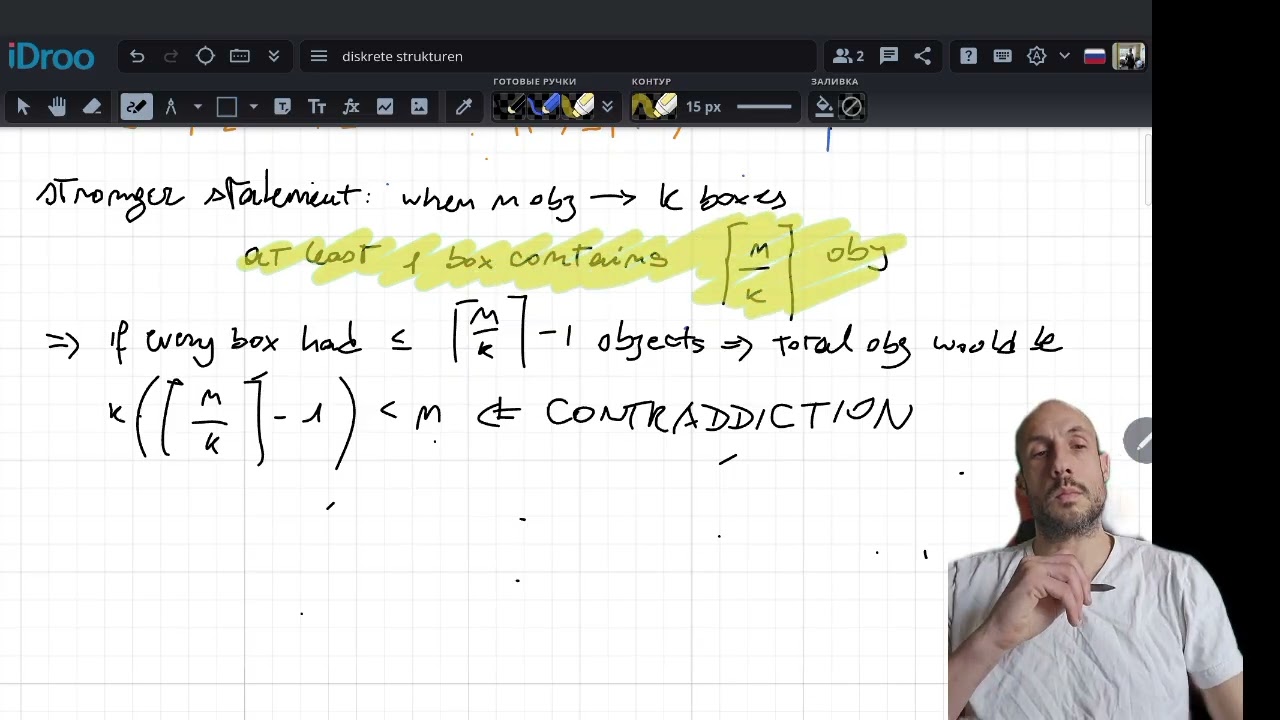 iDroo
diskrete strukturen
2
ГОТОВЫЕ РУЧКИ
КОНТУР
ЗАЛИВКА
15 px
stronger statement: when n obj → k boxes
at least 1 box contains ⌈n/k⌉ obj
⇒ if every box had ≤ ⌈n/k⌉ - 1 objects ⇒ total obj would be
k(⌈n/k⌉ - 1) < n ⇐ CONTRADDICTION